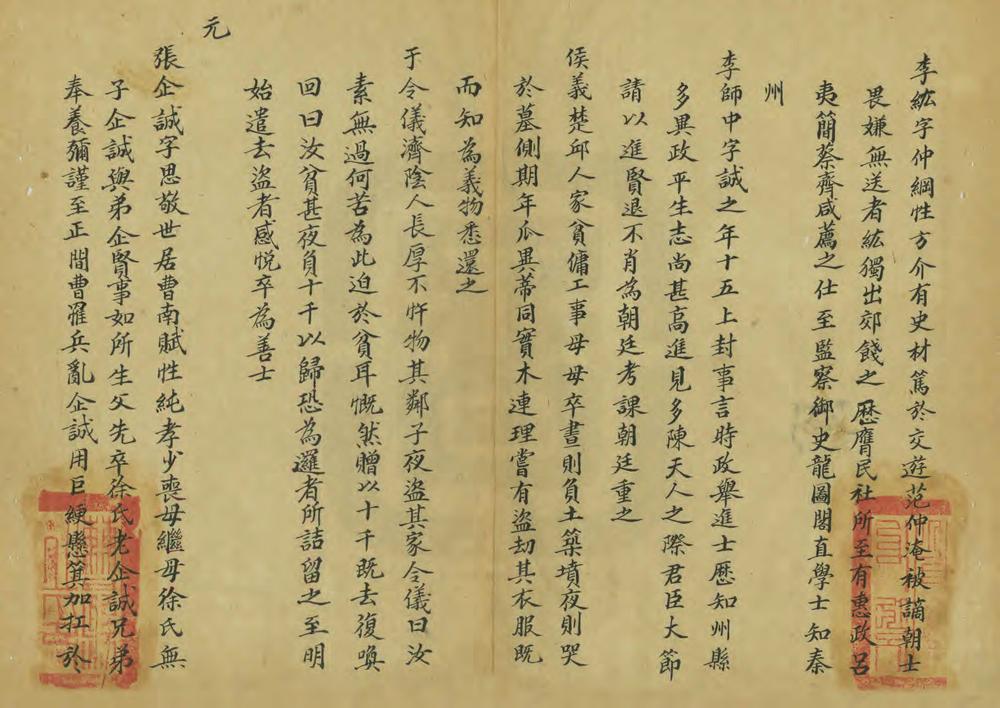 李紘字仲綱性方介有史材篤於交遊范仲淹被謫朝士
畏嫌無送者紘獨出郊餞之歷膺民社所至有惠政呂
夷簡蔡齊咸薦之仕至監察御史龍圖閣直學士知秦
州
李師中字誠之年十五上封事言時政舉進士歷知州縣
多異政平生志尚甚高進見多陳天人之際君臣大節
請以進賢退不肖為朝廷考課朝廷重之
侯義楚邱人家貧傭工事母母卒晝則負土築墳夜則哭
於墓側期年瓜異蒂同實木連理嘗有盜劫其衣服既
而知為義物悉還之
于令儀濟陰人長厚不忤物其鄰子夜盜其家令儀曰汝
素無過何苦為此迫於貧耳慨然贈以十千既去復喚
回曰汝貧甚夜負十千以歸恐為邏者所詰留之至明
始遣去盜者感悅卒為善士
元
張企誠字思敬世居曹南賦性純孝少喪母繼母徐氏無
子企誠與弟企賢事如所生父先卒徐氏老企誠兄弟
奉養彌謹至正間曹罹兵亂企誠用巨綆懸箕加扛於